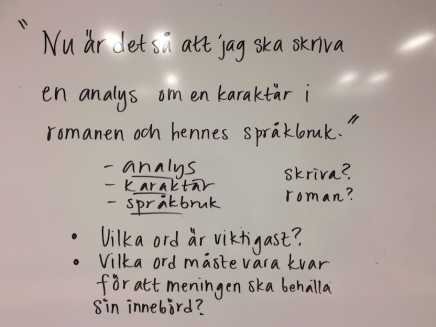 "Nu är det så att jag ska skriva
en analys om en karaktär i
romanen och hennes språkbruk."
- analys
- karaktär
- språkbruk
skriva?
roman?
• Vilka ord är viktigast?
• Vilka ord måste vara kvar
för att meningen ska behålla
sin innebörd?